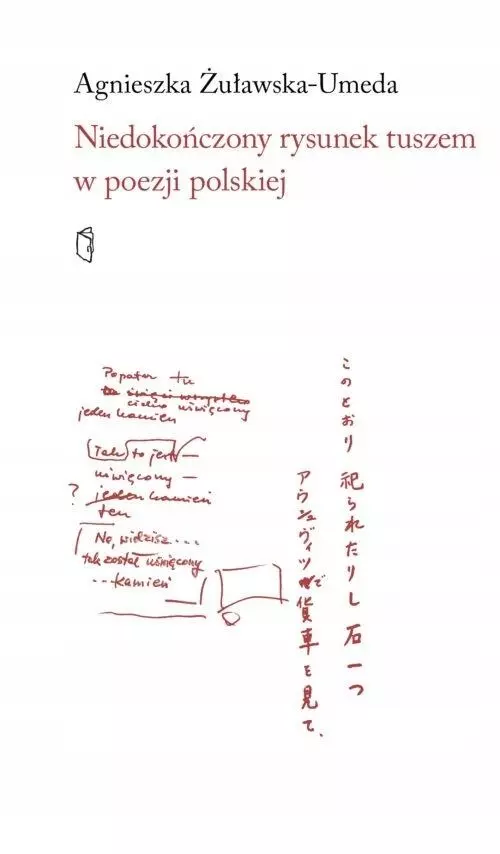 Agnieszka Żuławska-Umeda
Niedokończony rysunek tuszem
w poezji polskiej
Popatrz tu
uświęcony
jeden kamień
Tak to jest —
uświęcony —
? jeden kamień
ten
No, widzisz...
tak został uświęcony
...kamień
このとおり 祀られたりし 石一つ
アウシュヴィツで貨車を見て、